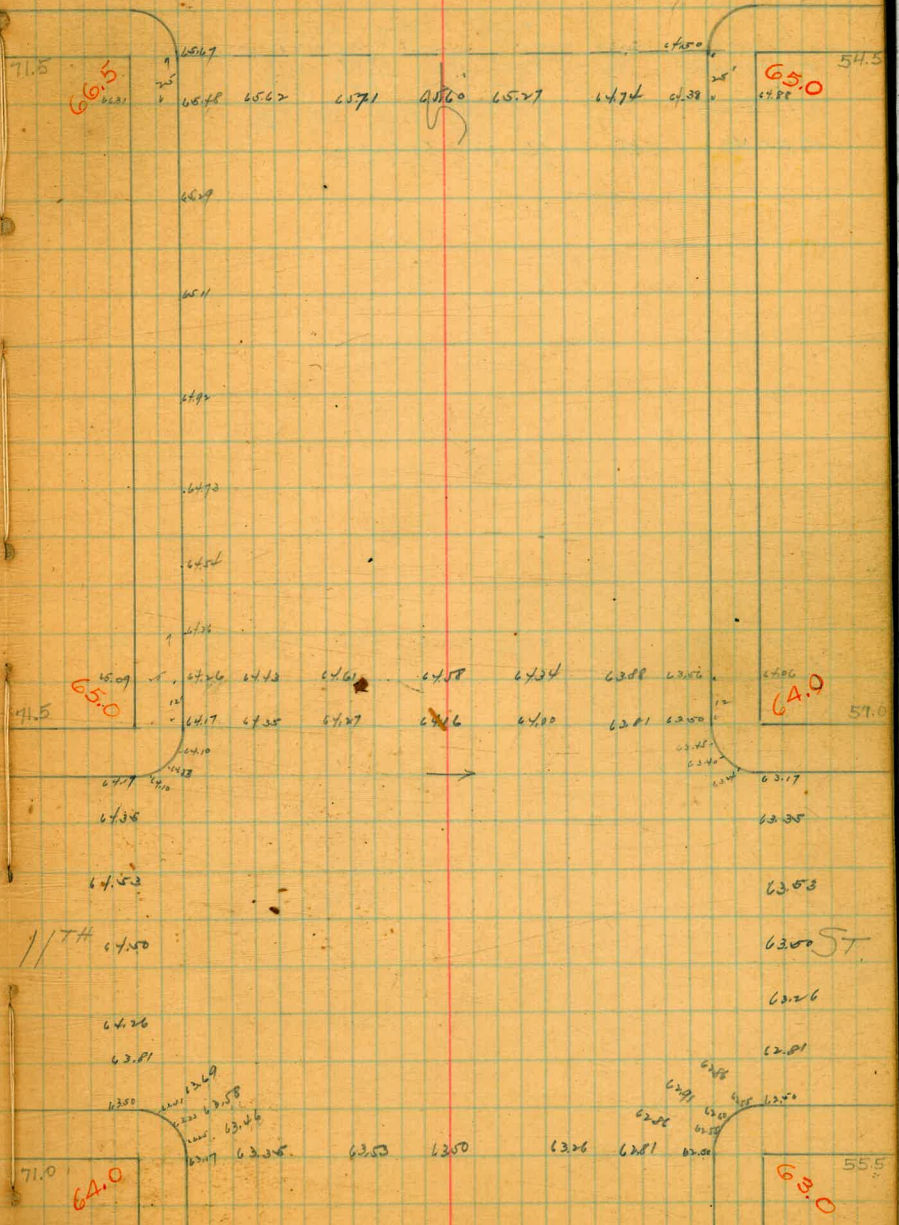 65.67 64.50
71.5 66.5 25' 25' 65.0 54.5
65.48 65.62 65.71 65.60 65.27 64.74 64.38 64.88
65.29
65.11
64.92
64.73
64.54
64.36
65.09 64.26 64.43 64.61 64.58 64.34 63.88 63.56 64.06
65.0 12' 12 64.0
71.5 64.17 64.35 64.27 64.16 64.00 63.81 63.50 57.0
64.10 63.45
63.40
64.17 64.10 63.17
64.35 63.35
64.53 63.53
11TH 64.50 63.50 ST.
63.26
64.26
63.81 62.81
63.69 62.86
63.50 63.58 62.91 62.55 62.50
63.46 62.86 62.60
62.55
63.17 63.35 63.53 63.50 63.26 62.81 62.50
71.0 64.0 63.0 55.5